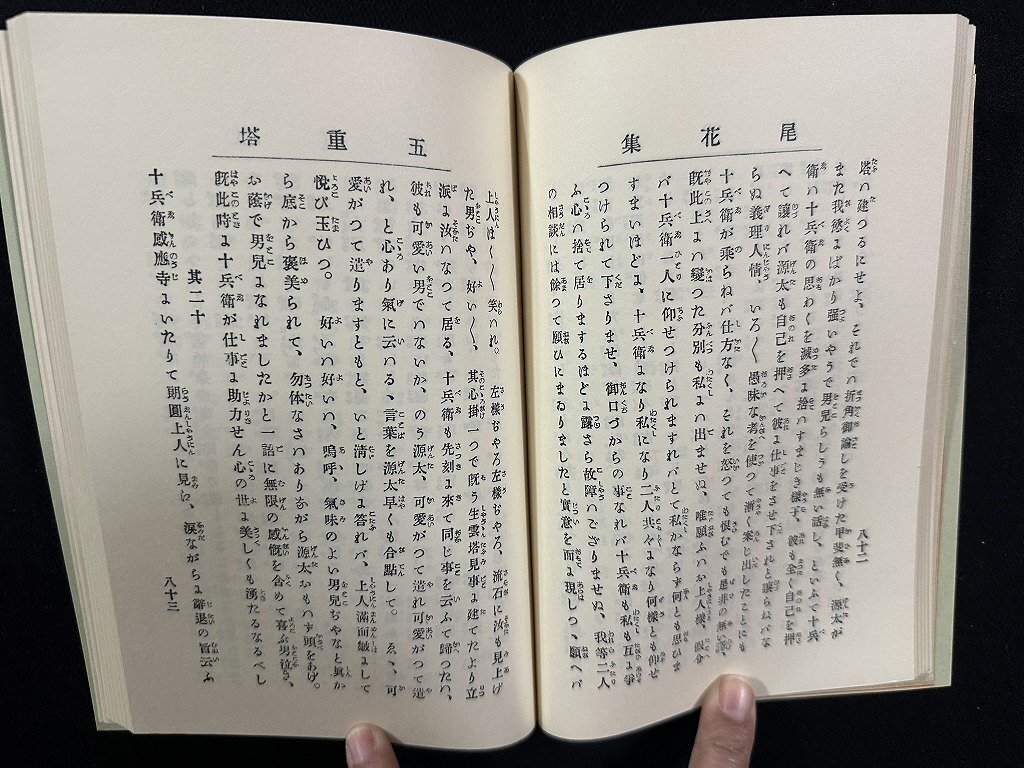 尾花集
塔ハ建つるにせよ、それでハ折角御諭しを受けた甲斐無く、源太が
また我慾ばかり强いやうで男兒らしうも無い話し、といふて十兵
衛ハ十兵衛の思わくを滅多に捨ハすまじき樣子、彼も全く自己を押
へて讓れバ源太も自己を押へて彼に仕事をさせ下されと讓らねバな
らぬ義理人情、いろ〱愚昧な考を使つて漸く案じ出したことにも
十兵衛が乘らねバ仕方なく、それを怒つても恨むでも是非の無い譯
既此上にハ變つた分別も私にハ出ませぬ、唯願ふハお上人樣、假令
バ十兵衛一人に仰せつけられますれバとて私かならず何とも思ひま
すまいほどに、十兵衛になり私になり二人共々になり何樣とも仰せ
つけられて下さりませ、御口づからの事なれバ十兵衛も私も互に爭
ふ心ハ捨て居りまするほどに露さら故障ハござりませぬ、我等二人
の相談には餘つて願ひにまゐりましたと實意を面に現しつゝ願へバ
八十二
五重塔
上人ほく〱笑ハれ。左樣ぢやろ左樣ぢやろ、流石に汝も見上げ
た男ぢや、好い〱、其心掛一つで既う生雲塔見事に建てたより立
派に汝ハなつて居る、十兵衛も先刻に來て同じ事を云ふて歸つたハ、
彼も可愛い男でハないか、のう源太、可愛がつて遣れ可愛がつて遣
れ、と心あり氣に云ハるゝ言葉を源太早くも合點して。ゑゝ、可
愛がつて遣りますともと、いと淸しげに答れバ、上人滿面皺にして
悅び玉ひつ。好いハ好いハ、嗚呼、氣味のよい男兒ぢやなと眞か
ら底から褒美られて、勿体なさハありながら源太おもハず頭をあげ。
お蔭で男兒になれましたかと一語に無限の感慨を含めて喜ぶ男泣き、
既此時に十兵衛が仕事に助力せん心の世に美しくも湧たるなるべし
其二十
十兵衛感應寺にいたりて朗圓上人に見え、淚ながらに辭退の旨云ふ
八十三